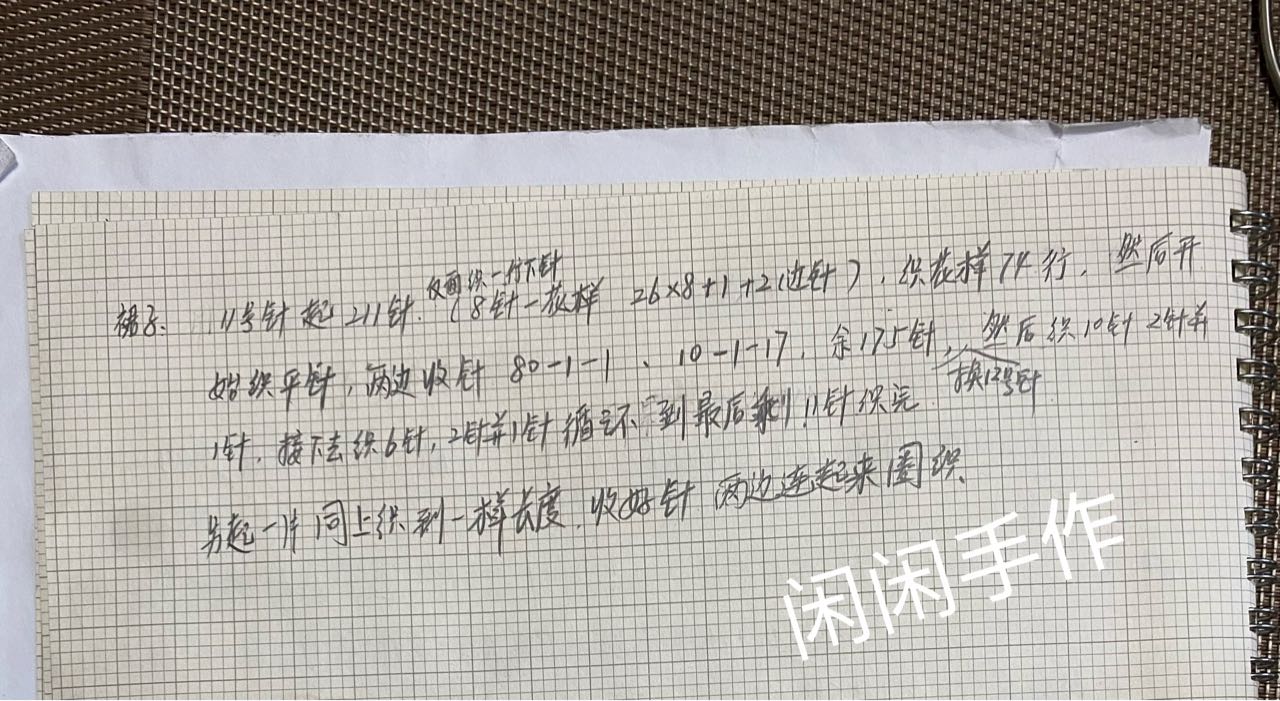 反面织一行下针
裙子、11号针起211针.（8针一花样 26×8+1+2(边针）, 织花样74行, 然后开
始织平针, 两边收针 80-1-1、10-1-17, 余175针, 然后织10针 2针并
换12号针
1针, 接下去织6针, 2针并1针循环 到最后剩11针织完
另起一片同上织到一样长度, 收好针 两边连起来圈织.
闲闲手作